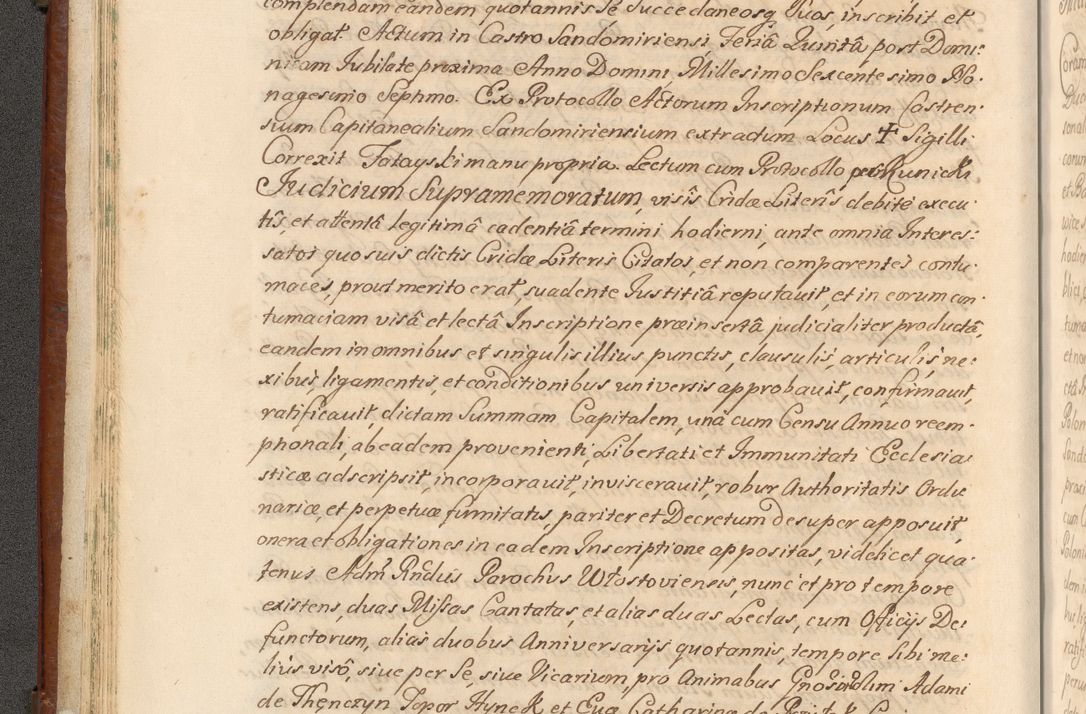 complendam eandem quotannis Se Succedaneosq Suos, inscribit et
obligat. Actum in Castro Sandomiriensi Feriâ Quintâ post Domi:
nicam Jubilate proxima Anno Domini Millesimo Sexcentesimo No:
nagesimo Septmo. Ex Protocollo Actorum Inscriptionum Castren:
sium Capitanealium Sandomiriensium extractum Locus ✝ Sigilli
Correxit Fatayski manu propria. Lectum cum Protocollo per Kunicki
Judicium Supramemoratum, visis Cridæ Literis debite execu
tis, et attentâ legitimâ cadentiâ termini hodierni, ante omnia Interes:
satos quosuis dictis Cridæ Literis Citatos, et non comparentes contu:
maces, prout merito erat, suadente Iustitiâ reputauit, et in eorum con
tumaciam visâ et lectâ Inscriptione præinsertâ judicialiter productâ,
eandem in omnibus et singulis illius punctis, clausulis, articulis, ne:
xibus, ligamentis, et conditionibus universis approbauit, confirmauit,
ratificauit, dictam Summam Capitalem, unâ cum Censu Annuo reem:
phonali, ab eadem provenienti, Libertati et Immunitati Ecclesia:
sticæ adscripsit, incorporauit, inviscerauit, robur Authoritatis Ordi:
nariæ, et perpetuæ firmitatis, pariter et Decretum desuper apposuit,
onera et obligationes in eadem Inscriptione appositas, videlicet qua:
tenus Adm Rndus Parochus Włostoviensis, nunc et pro tempore
existens, duas Missas Cantatas, et alias duas Lectas, cum Officijs De:
functorum, alias duobus Anniversarijs quotannis, tempore Sibi me:
lius visô, siue per Se, siue Vicarium, pro Animabus Gnosor olim Adami
de Thęnczyn Topor Hynek et Eua Catharina de